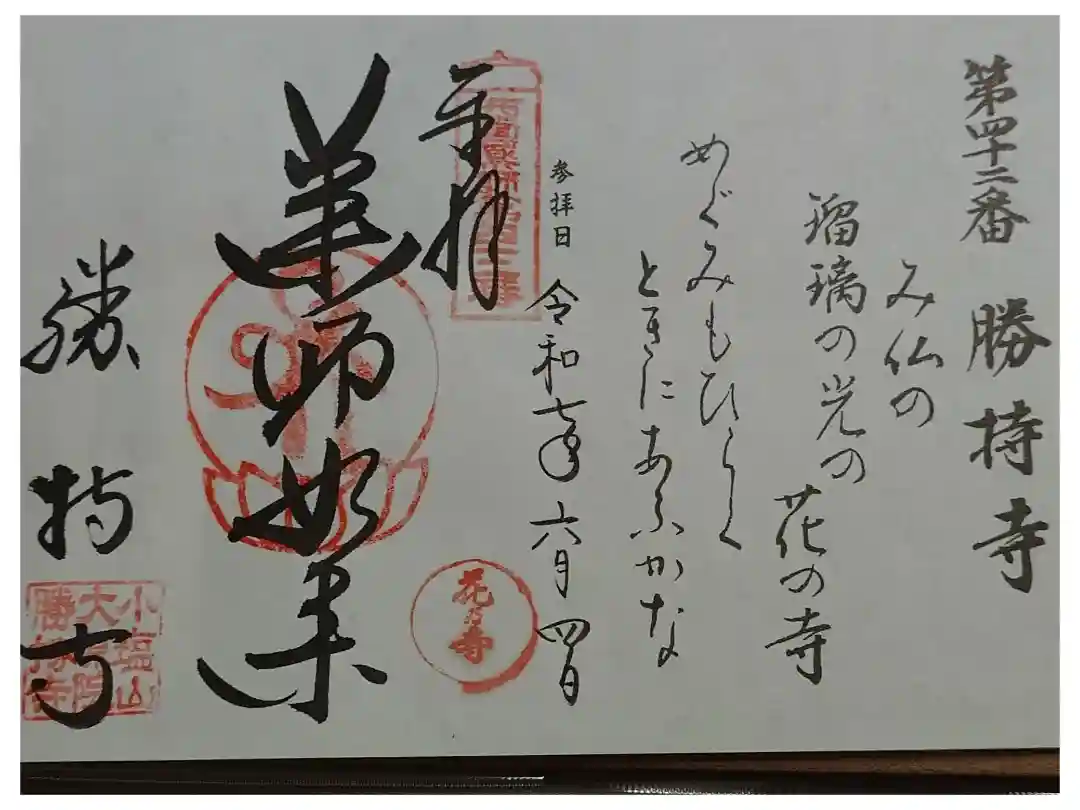 第四十二番 勝持寺
み仏の
瑠璃の光の
花の寺
めぐみもひらく
ときにあふかな
参拝日 令和七年 六月 四日
奉拝
花乃寺
薬師如来
勝持寺
小塩山
大原院
勝持寺